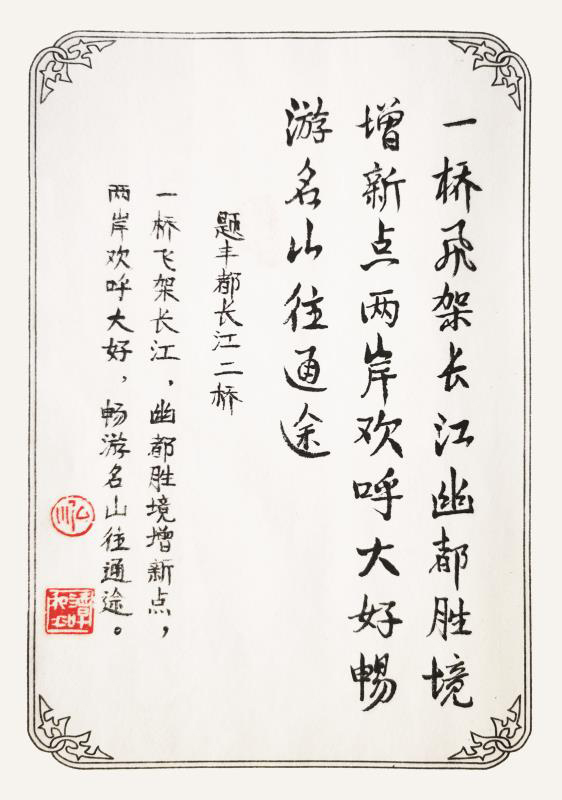 一桥飛架长江幽都胜境
增新点两岸欢呼大好暢
游名山往通途
题丰都长江二桥
一桥飞架长江，幽都胜境增新点，
两岸欢呼大好，畅游名山往通途。